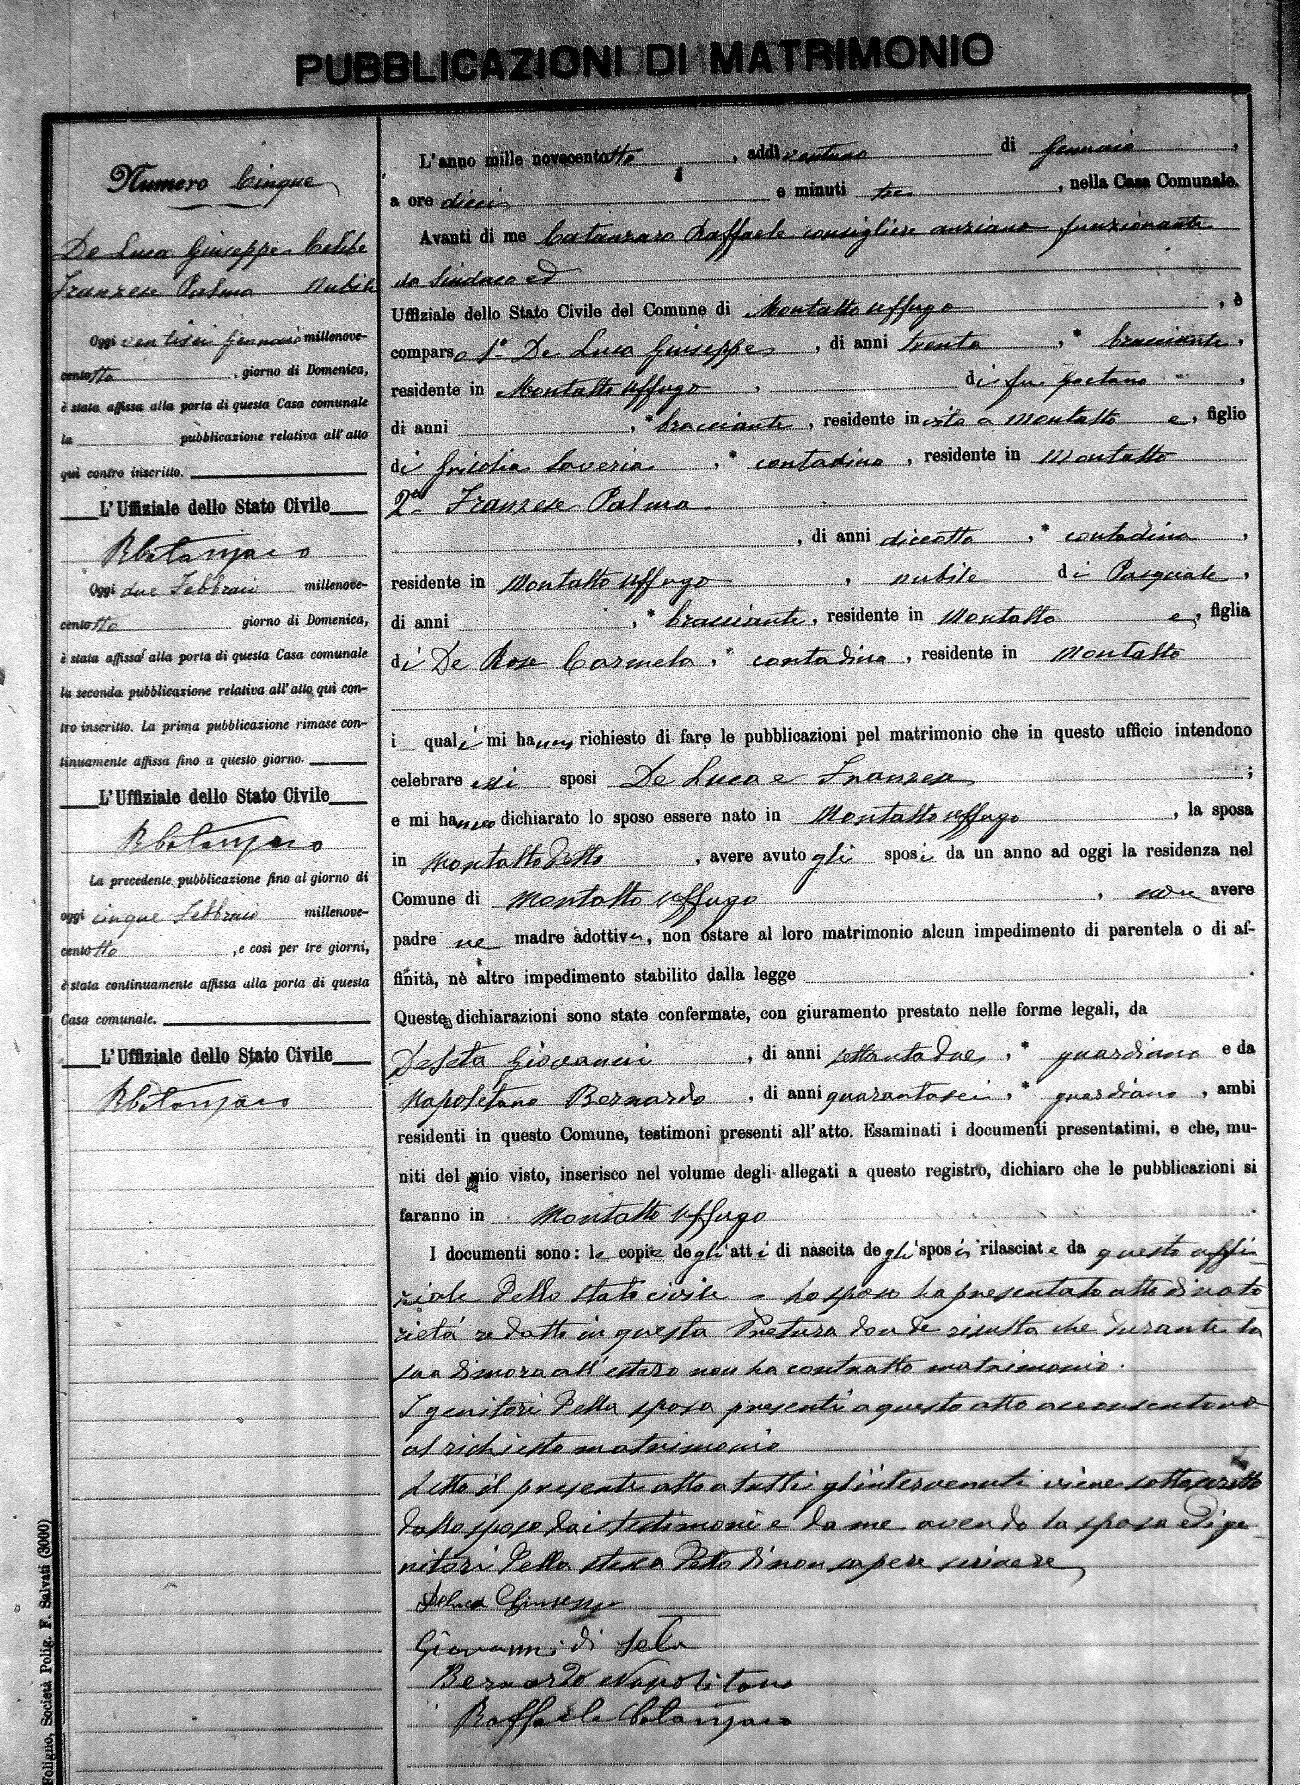 PUBBLICAZIONI DI MATRIMONIO
Numero Cinque
De Luca Giuseppe Celibe
Franzese Palma nubile
Oggi ventisei Gennaio millenove-
centotto, giorno di Domenica,
è stata affissa alla porta di questa Casa comunale
la pubblicazione relativa all'atto
qui contro inscritto.
L'Uffiziale dello Stato Civile
RCatanzaro
Oggi due Febbraio millenove-
centotto giorno di Domenica,
è stata affissa alla porta di questa Casa comunale
la seconda pubblicazione relativa all'atto qui con-
tro inscritto. La prima pubblicazione rimase con-
tinuamente affissa fino a questo giorno.
L'Uffiziale dello Stato Civile
RCatanzaro
La precedente pubblicazione fino al giorno di
oggi cinque Febbraio millenove-
centotto, e così per tre giorni,
è stata continuamente affissa alla porta di questa
Casa comunale.
L'Uffiziale dello Stato Civile
RCatanzaro
L'anno mille novecentotto, addì ventuno di Gennaio,
a ore dieci e minuti tre, nella Casa Comunale.
Avanti di me Catanzaro Raffaele consigliere anziano funzionante
da Sindaco ed
Uffiziale dello Stato Civile del Comune di Montalto Uffugo, è
comparso 1° De Luca Giuseppe, di anni trenta, * bracciante,
residente in Montalto Uffugo, di fu Gaetano,
di anni , * bracciante, residente in vita a Montalto e, figlio
di Grisolia Saveria, * contadina, residente in Montalto
2° Franzese Palma
, di anni diciotto, * contadina,
residente in Montalto Uffugo, nubile di Pasquale,
di anni , * bracciante, residente in Montalto e, figlia
di De Rose Carmela, * contadina, residente in Montalto
i quali mi hanno richiesto di fare le pubblicazioni pel matrimonio che in questo ufficio intendono
celebrare essi sposi De Luca e Franzese;
e mi hanno dichiarato lo sposo essere nato in Montalto Uffugo, la sposa
in Montalto detto, avere avuto gli sposi da un anno ad oggi la residenza nel
Comune di Montalto Uffugo, non avere
padre ne madre adottivi, non ostare al loro matrimonio alcun impedimento di parentela o di af-
finità, nè altro impedimento stabilito dalla legge.
Queste dichiarazioni sono state confermate, con giuramento prestato nelle forme legali, da
De Seta Giovanni, di anni settantadue, * guardiano e da
Napolitano Bernardo, di anni quarantasei, * guardiano, ambi
residenti in questo Comune, testimoni presenti all'atto. Esaminati i documenti presentatimi, e che, mu-
niti del mio visto, inserisco nel volume degli allegati a questo registro, dichiaro che le pubblicazioni si
faranno in Montalto Uffugo.
I documenti sono: le copie degli atti di nascita degli sposi rilasciate da questo uffi-
ziale dello stato civile - Lo sposo ha presentato atto di noto
rietà redatto in questa Pretura donde risulta che durante la
sua dimora all'estero non ha contratto matrimonio.
I genitori della sposa presenti a questo atto acconsentono
al richiesto matrimonio
Letto il presente atto a tutti gl'intervenuti viene sottoscritto
dallo sposo dai testimoni e da me avendo la sposa ed i ge-
nitori della stessa detto di non sapere scrivere
Deluca Giuseppe
Giovanni di Seta
Bernardo Napolitano
Raffaele Catanzaro
Foligno, Società Polig. F. Salvati (3000)